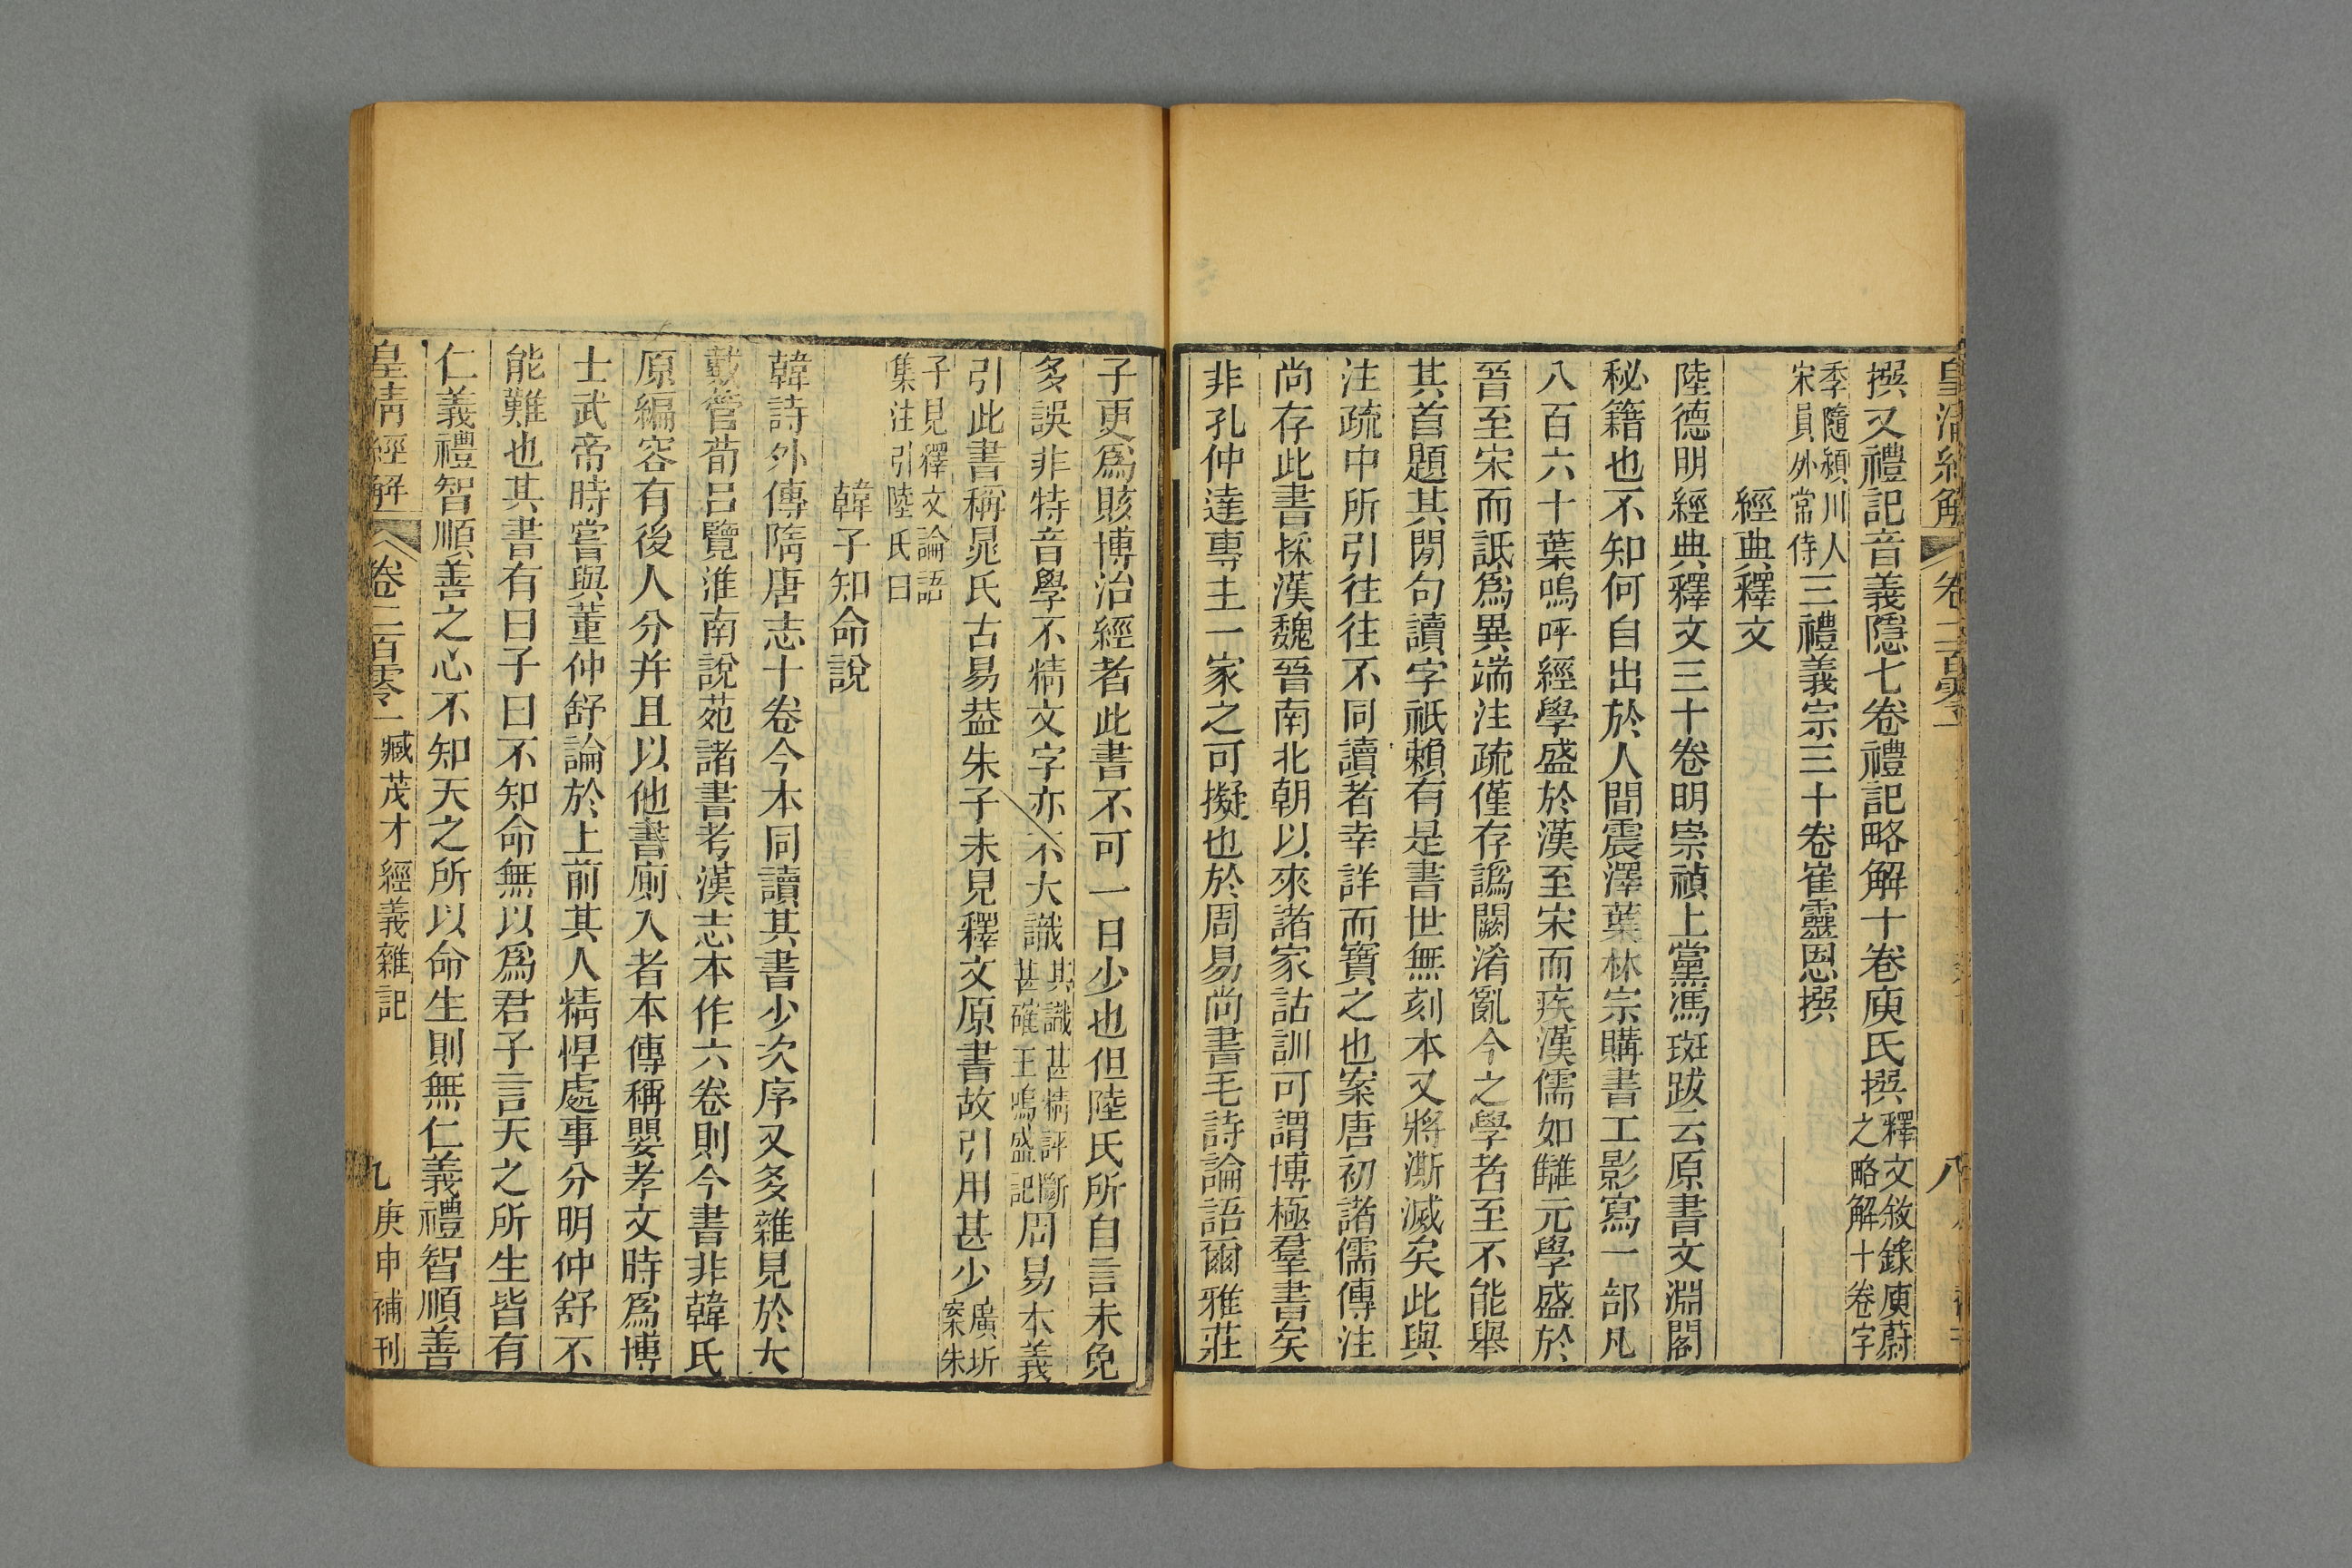 皇清經解 卷二百零一 八
撰又禮記音義隱七卷禮記略解十卷庾氏撰釋文敘錄庾蔚之略解十卷字
季隨潁川人宋員外常侍三禮義宗三十卷崔靈恩撰
經典釋文
陸德明經典釋文三十卷明崇禎上黨馮班跋云原書文淵閣
秘籍也不知何自出於人間震澤葉林宗購書工影寫一部凡
八百六十葉嗚呼經學盛於漢至宋而疾漢儒如讎元學盛於
晉至宋而詆爲異端注疏僅存譌闕淆亂今之學者至不能舉
其首題其閒句讀字祇賴有是書世無刻本又將漸滅矣此與
注疏中所引往往不同讀者幸詳而寶之也案唐初諸儒傳注
尚存此書採漢魏晉南北朝以來諸家詁訓可謂博極羣書矣
非孔仲達專主一家之可擬也於周易尚書毛詩論語爾雅莊
子更爲賅博治經者此書不可一日少也但陸氏所自言未免
多誤非特音學不精文字亦不大識其識甚精評斷甚確王鳴盛記周易本義
引此書稱晁氏古易葢朱子未見釋文原書故引用甚少廣圻案朱
子見釋文論語集注引陸氏曰
韓子知命說
韓詩外傳隋唐志十卷今本同讀其書少次序又多雜見於大
戴管荀呂覽淮南說苑諸書考漢志本作六卷則今書非韓氏
原編容有後人分并且以他書廁入者本傳稱嬰孝文時爲博
士武帝時嘗與董仲舒論於上前其人精悍處事分明仲舒不
能難也其書有曰子曰不知命無以爲君子言天之所生皆有
仁義禮智順善之心不知天之所以命生則無仁義禮智順善
皇清經解 卷二百零一 臧茂才經義雜記 九 庚申補刊